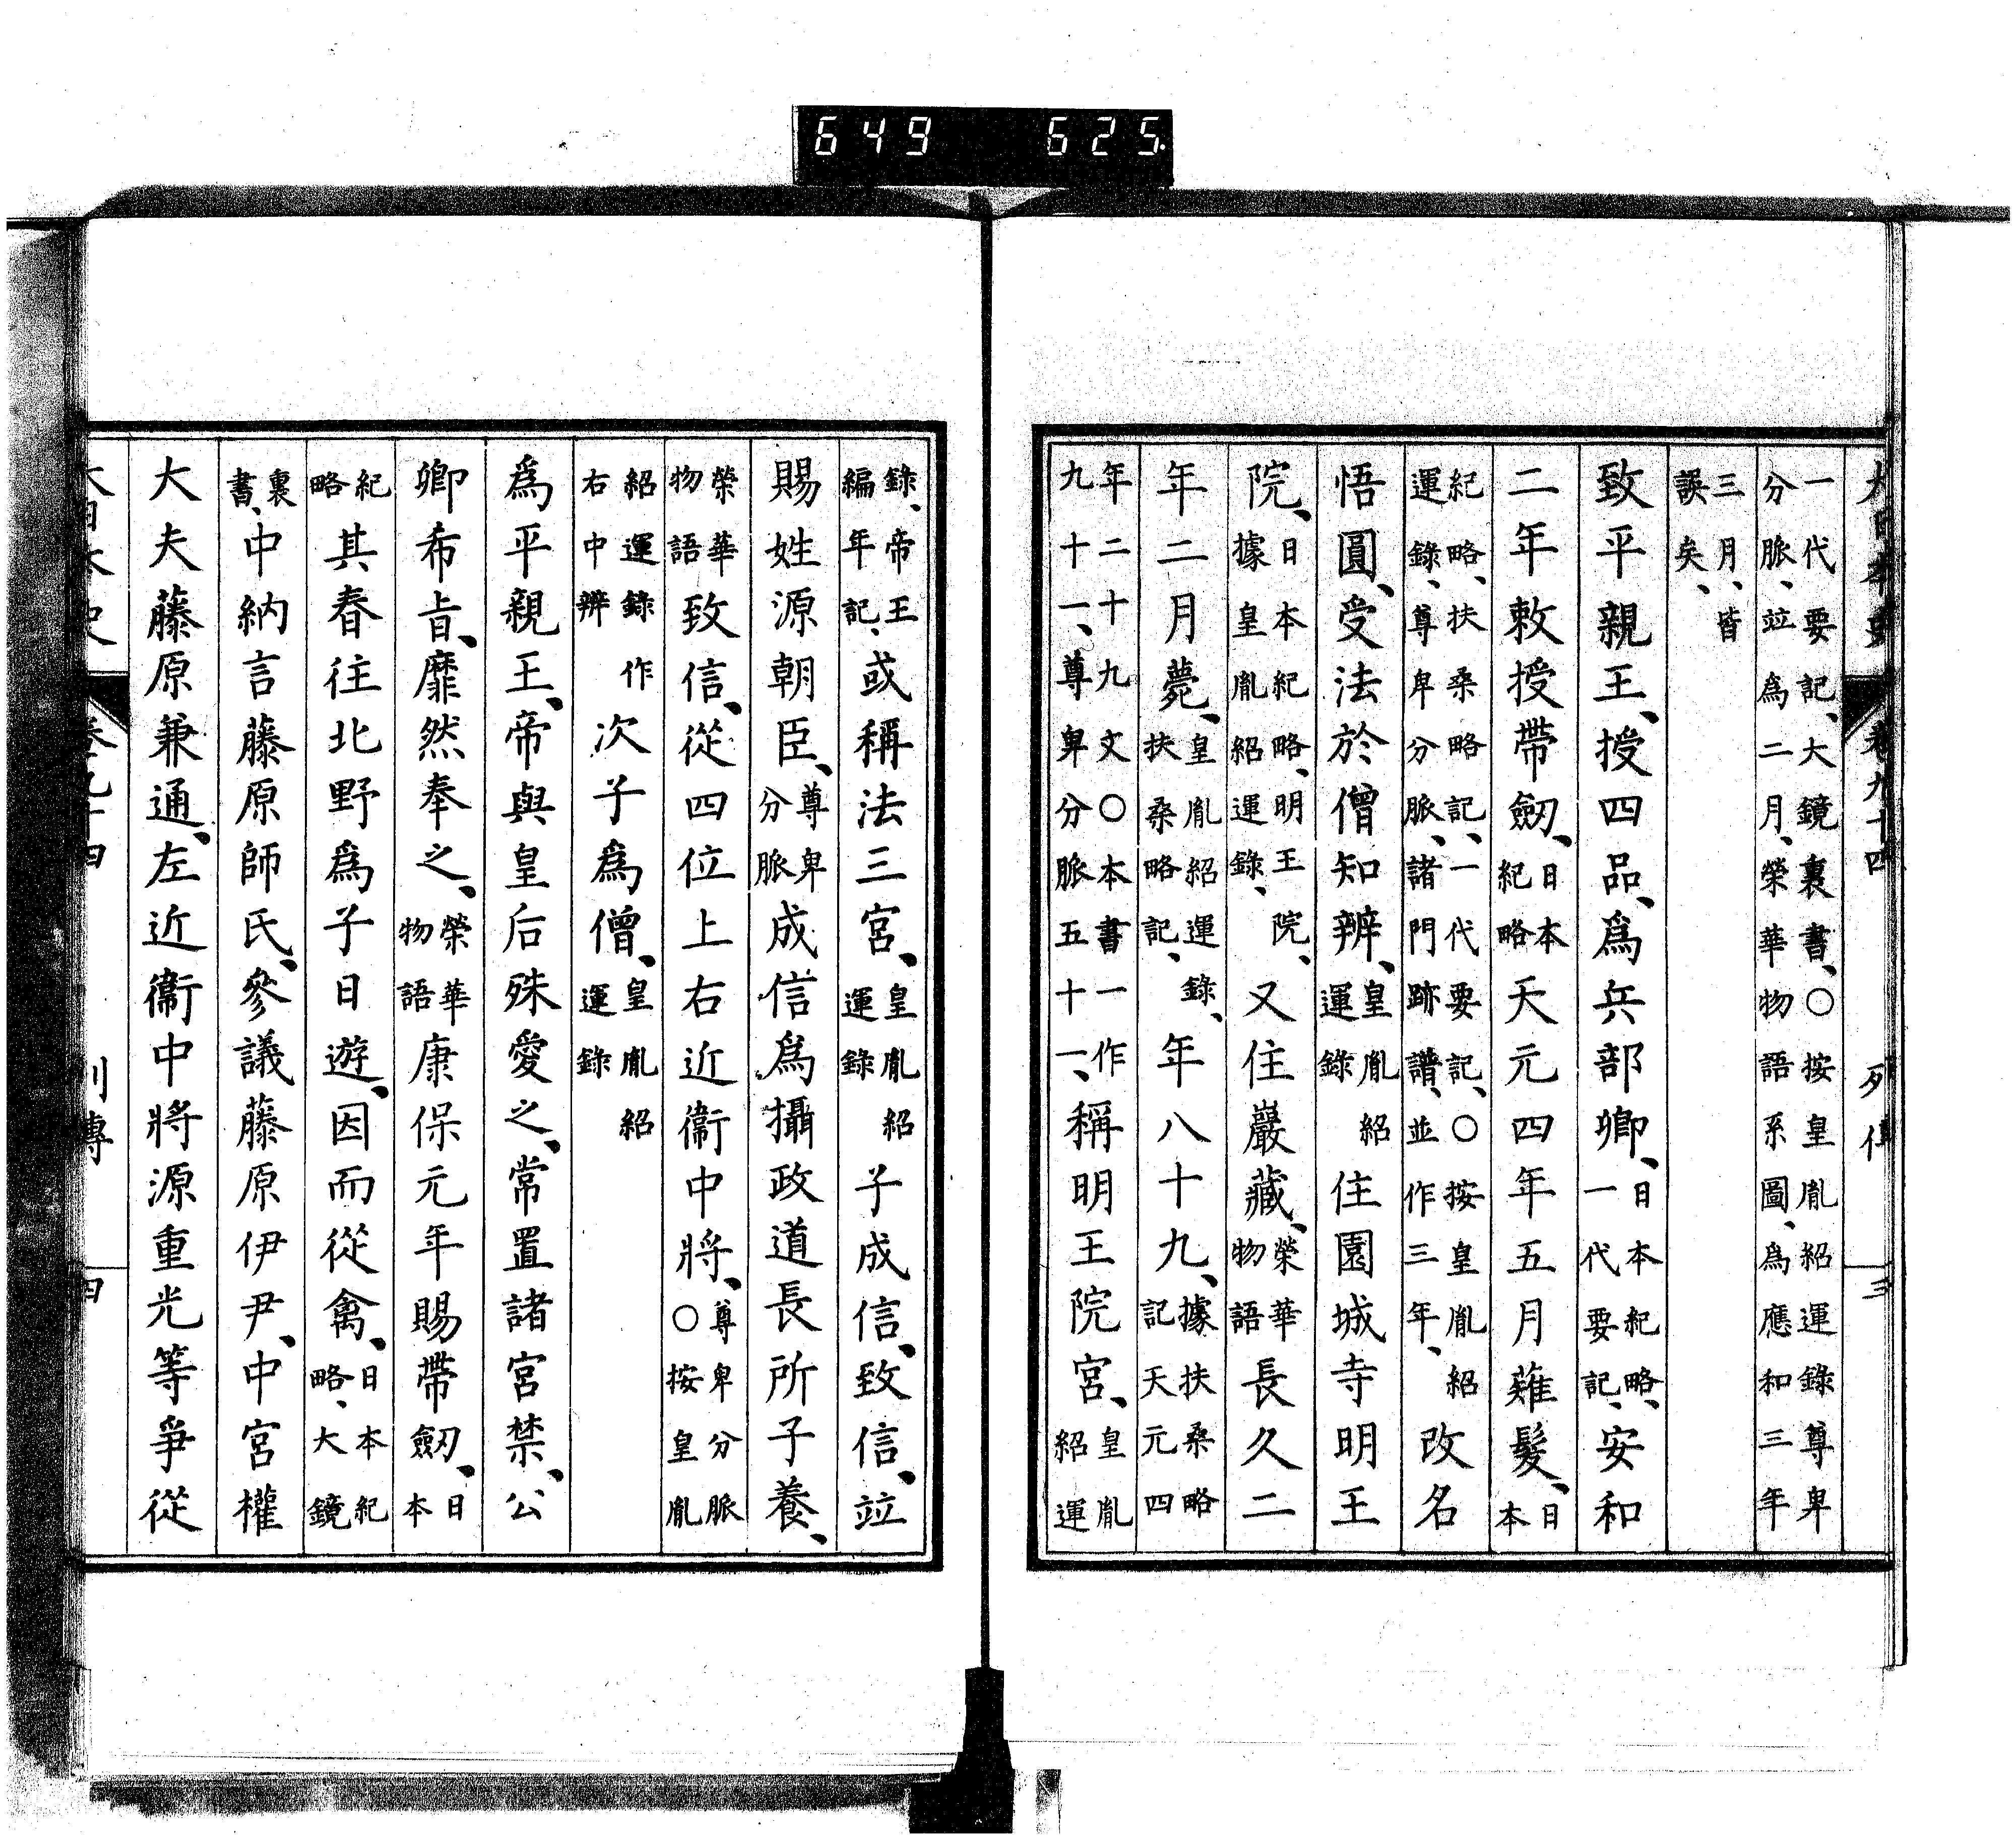 649 625.
大日本史 卷九十四 列傳 三
一代要記、大鏡裏書、〇按皇胤紹運錄尊卑
分脈、竝爲二月、榮華物語系圖、爲應和三年
三月、皆
誤矣、
致平親王、授四品、爲兵部卿、日本紀略、一代要記、安和
二年敕授帶劒、日本紀略天元四年五月薙髮、日本
紀略、扶桑略記、一代要記、〇按皇胤紹運錄、尊卑分脈、諸門跡譜、並作三年、改名
悟圓、受法於僧知辨、皇胤紹運錄住園城寺明王
院、日本紀略、明王院、據皇胤紹運錄、又住巖藏、榮華物語長久二
年二月薨、皇胤紹運錄、扶桑略記、年八十九、據扶桑略記天元四
年二十九文〇本書一作九十一、尊卑分脈五十一、稱明王院宮、皇胤紹運
錄、帝王編年記、或稱法三宮、皇胤紹運錄子成信、致信、竝
賜姓源朝臣、尊卑分脈成信爲攝政道長所子養、
榮華物語致信、從四位上右近衞中將、尊卑分脈〇按皇胤
紹運錄作右中辨次子爲僧、皇胤紹運錄
爲平親王、帝與皇后殊愛之、常置諸宮禁、公
卿希旨、靡然奉之、榮華物語康保元年賜帶劒、日本
紀略其春往北野爲子日遊、因而從禽、日本紀略、大鏡
裏書、中納言藤原師氏、參議藤原伊尹、中宮權
大夫藤原兼通、左近衞中將源重光等爭從
大日本史 卷九十四 列傳 四